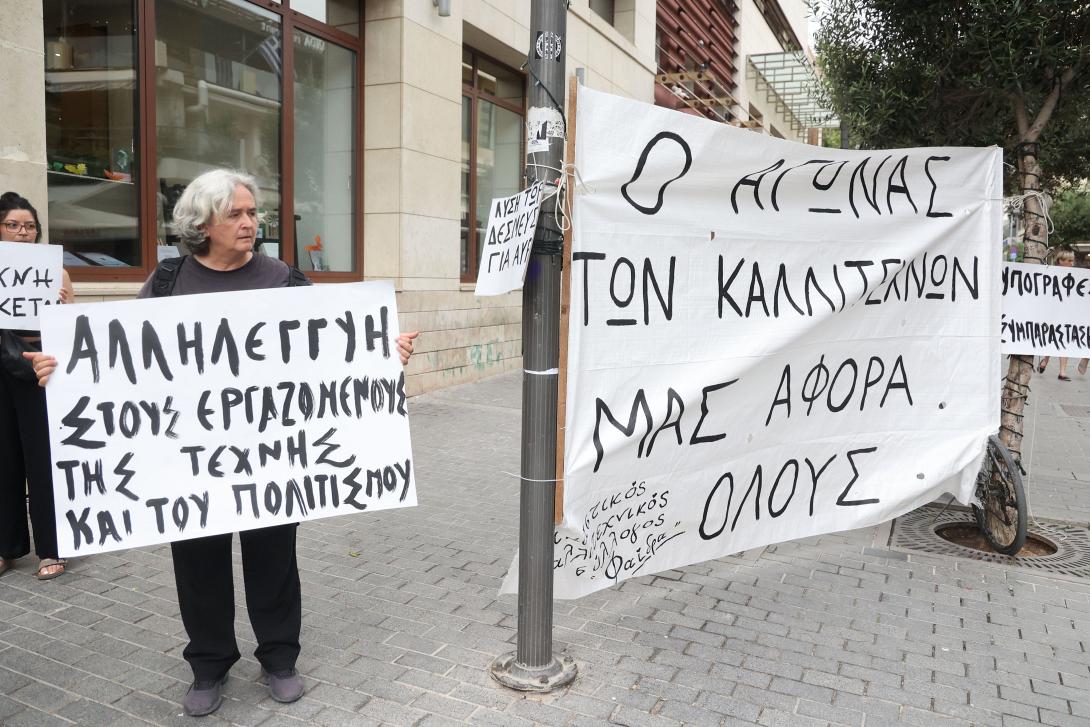 ΑΛΛΗΛΕΓΓΥΗ
ΣΤΟΥΣ ΕΡΓΑΖΟΜΕΝΟΥΣ
ΤΗΣ ΤΕΧΝΗΣ
ΚΑΙ ΤΟΥ ΠΟΛΙΤΙΣΜΟΥ
ΛΥΣΗ ΤΩΡ
ΔΕΣΜΕΥΣ
ΓΙΑ ΑΥΡ
Ο ΑΓΩΝΑΣ
ΤΩΝ ΚΑΛΛΙΤΕΧΝΩΝ
ΜΑΣ ΑΦΟΡΑ
ΟΛΟΥΣ
σύλλογος
"Φαίδρα"
ΥΠΟΓΡΑΦΕΣ
ΣΥΜΠΑΡΑΣΤΑΣΗ